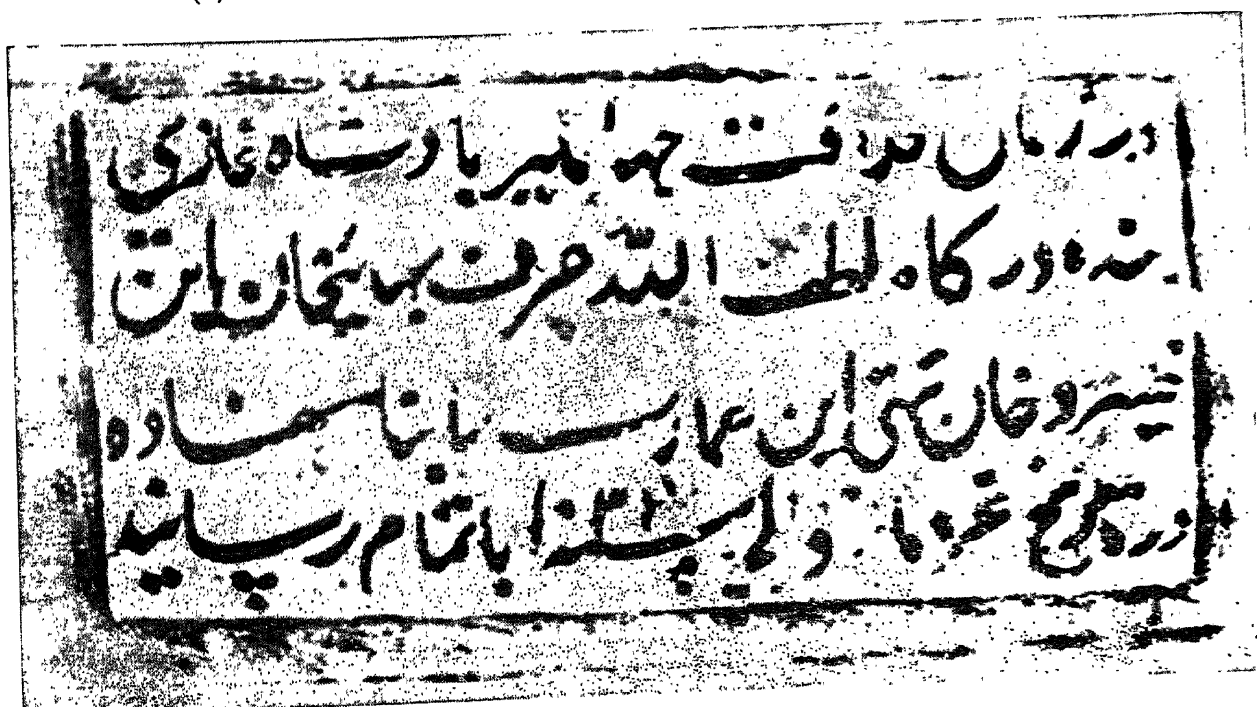 در زمان خلافت جهانگیر بادشاه غازی
بنده درگاه لطف الله عرف بهائیخان ابن
خسرو خان تتی این عمارت با بنا نهاده
در تاریخ غره ماه سنه ۱۰۳۲ باتمام رسانید